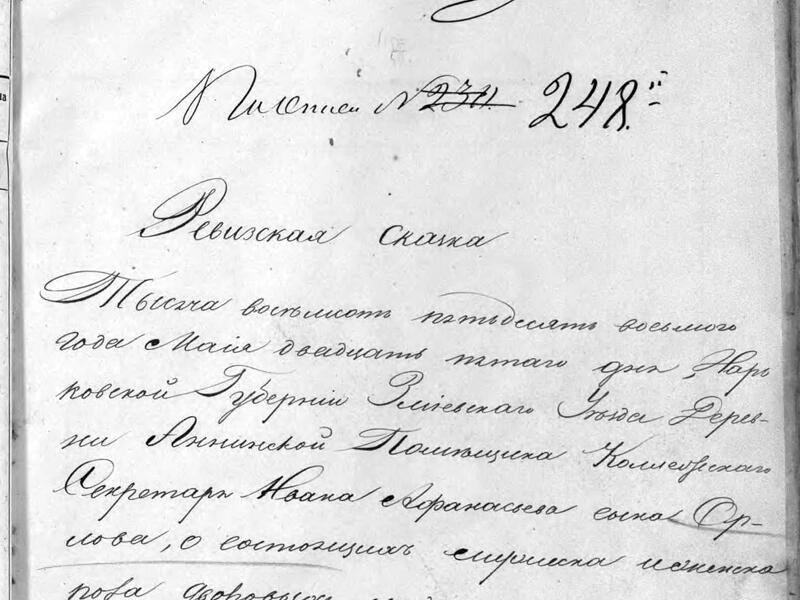 По описи № 234. 248.
Ревизская сказка
Тысяча восемьсотъ пятьдесятъ восьмого
года Маія двадцать пятаго дня, Харь
ковской Губерніи Зміевскаго Уѣзда Дерев-
ни Аннинской Помѣщика Коллежскаго
Секретаря Ивана Афанасьева сына Ор-
лова, о состоящихъ мужеска и женска
пола дворовыхъ